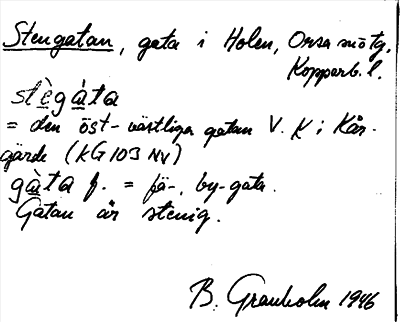 Stengatan, gata i Holen, Orsa mötg,
Kopparb. l.
stègàta
= den öst-västliga gatan V. K i Kår-
gärde (KG 103 NV)
gàta f. = fä-, by-gata.
Gatan är stenig.
B. Granholm 1946